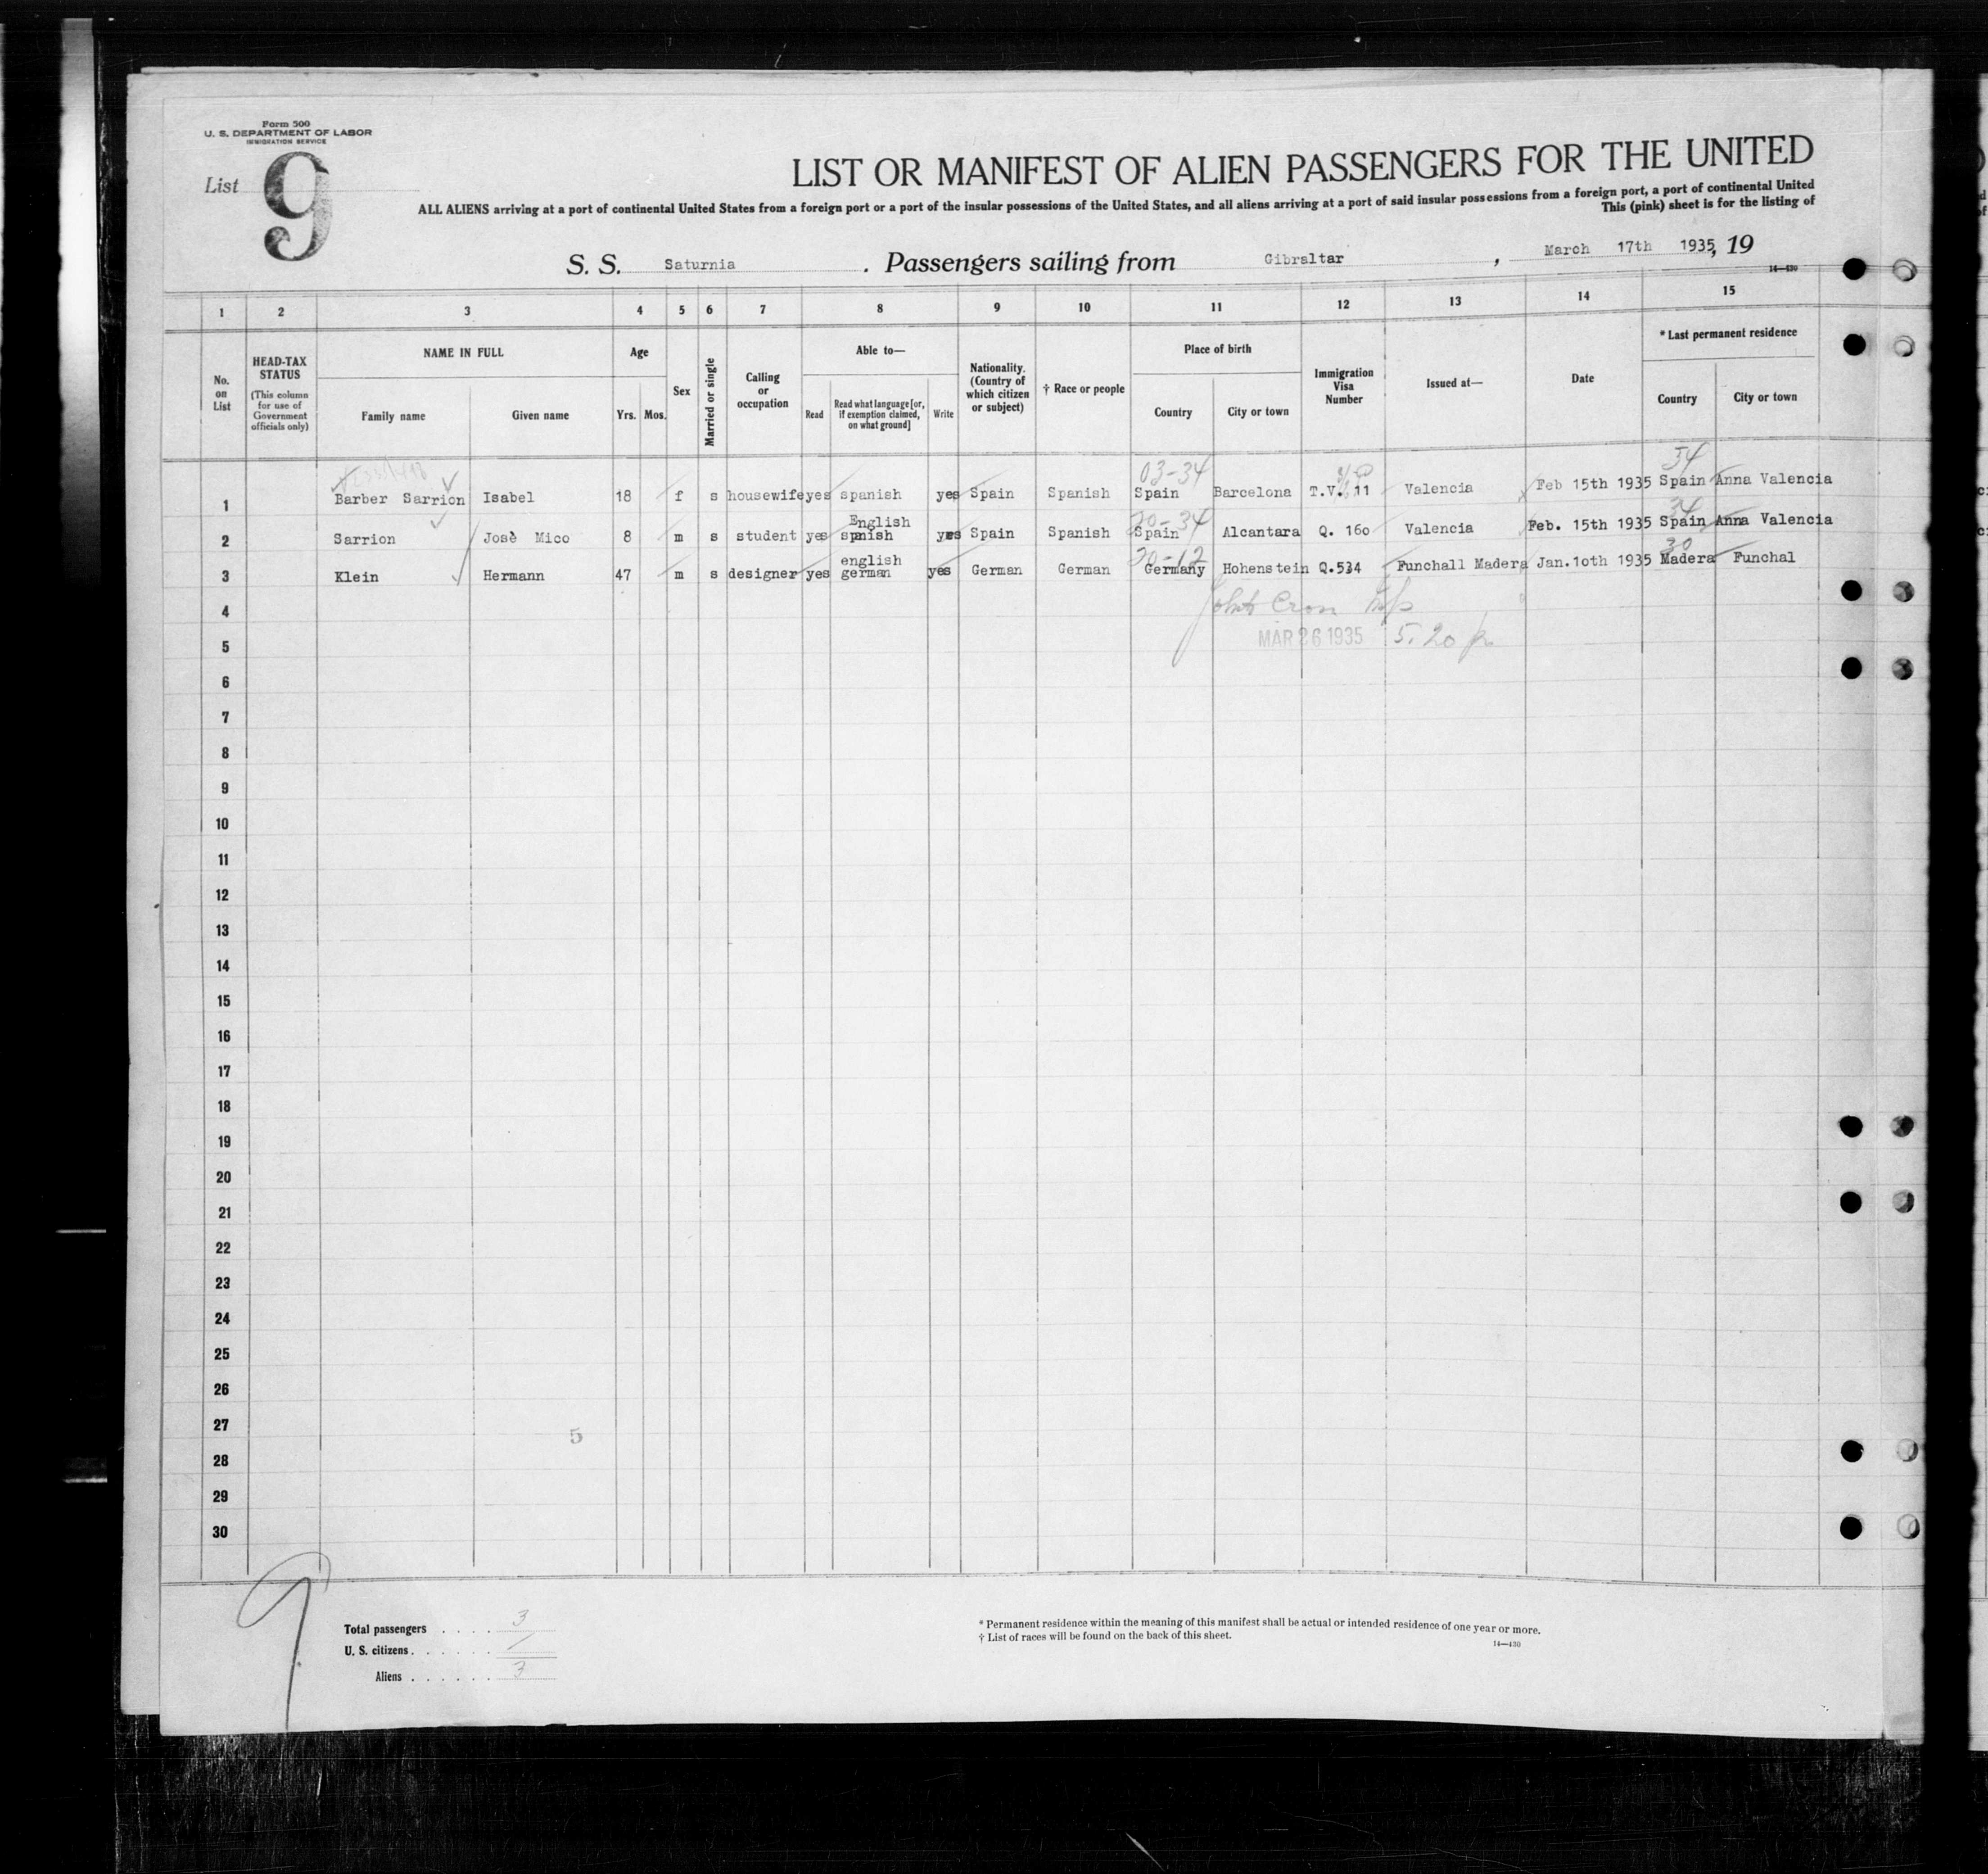 Form 500
U. S. DEPARTMENT OF LABOR
IMMIGRATION SERVICE
List 9
LIST OR MANIFEST OF ALIEN PASSENGERS FOR THE UNITED
ALL ALIENS arriving at a port of continental United States from a foreign port or a port of the insular possessions of the United States, and all aliens arriving at a port of said insular possessions from a foreign port, a port of continental United
This (pink) sheet is for the listing of
S. S. Saturnia . Passengers sailing from Gibraltar , March 17th 1935, 19
14—430
1 2 3 4 5 6 7 8 9 10 11 12 13 14 15
No. on List
HEAD-TAX STATUS
(This column for use of Government officials only)
NAME IN FULL
Family name
Given name
Age
Yrs.
Mos.
Sex
Married or single
Calling or occupation
Able to—
Read
Read what language [or, if exemption claimed, on what ground]
Write
Nationality. (Country of which citizen or subject)
† Race or people
Place of birth
Country
City or town
Immigration Visa Number
Issued at—
Date
* Last permanent residence
Country
City or town
03-34
34
1 Barber Sarrion Isabel 18 f s housewife yes spanish yes Spain Spanish Spain Barcelona T.V. 11 Valencia Feb 15th 1935 Spain Anna Valencia
English 20-34 34
2 Sarrion Josè Mico 8 m s student yes spnish yes Spain Spanish Spain Alcantara Q. 16o Valencia Feb. 15th 1935 Spain Anna Valencia
english 20-12 30
3 Klein Hermann 47 m s designer yes german yes German German Germany Hohenstein Q.534 Funchall Madera Jan.1oth 1935 Madera Funchal
4
MAR 26 1935 5.20
5
6
7
8
9
10
11
12
13
14
15
16
17
18
19
20
21
22
23
24
25
26
27
5
28
29
30
9
Total passengers . . . . 3
U. S. citizens . . . . . . /
Aliens . . . . . . 3
* Permanent residence within the meaning of this manifest shall be actual or intended residence of one year or more.
† List of races will be found on the back of this sheet.
14—430